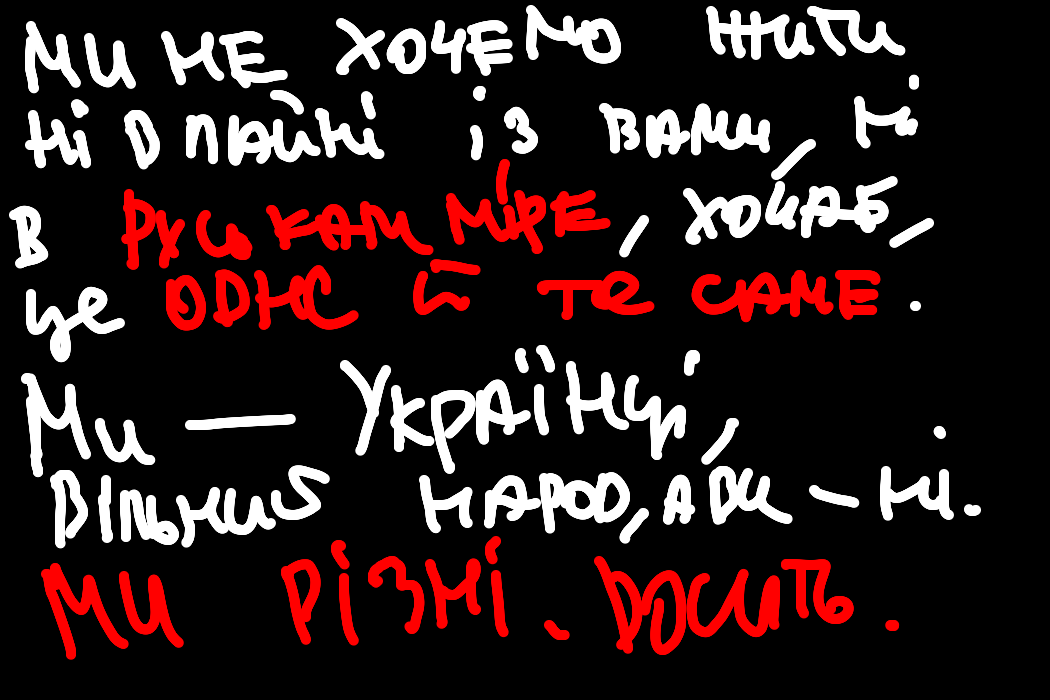 Ми не хочемо жити
ні в пайні із вами, ні
в руськам міре, хоча б,
це одне й те саме.
Ми — Українці,
вільний народ, а ви – ні.
Ми різні. Досить.